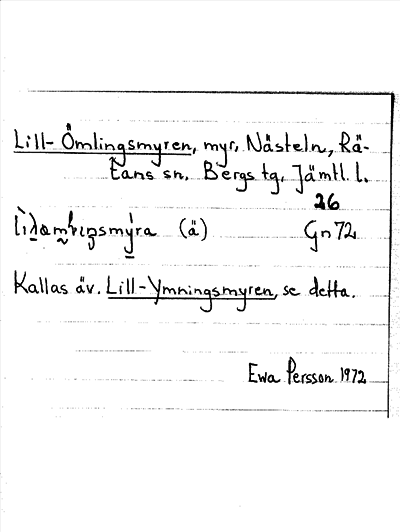 Lill-Ömlingsmyren, myr, Nästeln, Rä-
tans sn, Bergs tg, Jämtl. l.
26
(ä) Gn 72
Kallas äv. Lill-Ymningsmyren, se detta.
Ewa Persson 1972